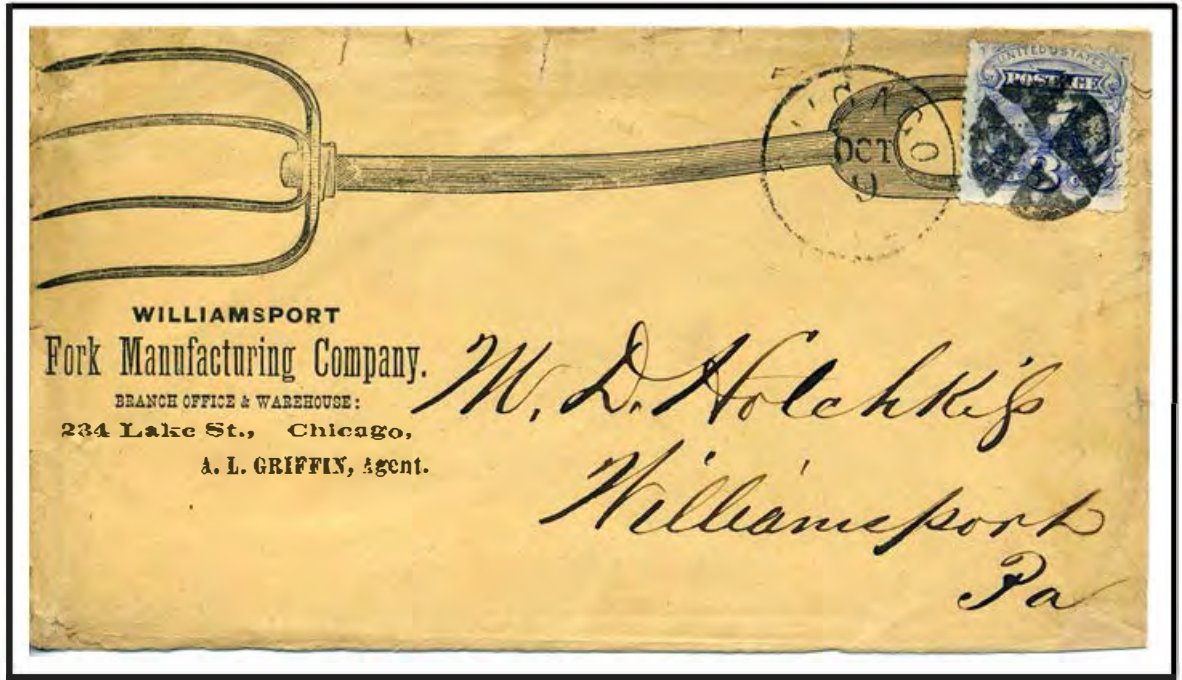 UNITED STATES
POSTAGE
3
CHICAGO
OCT
WILLIAMSPORT
Fork Manufacturing Company.
BRANCH OFFICE & WAREHOUSE:
234 Lake St., Chicago,
A. L. GRIFFIN, Agent.
M. D. Hotchkiss
Williamsport
Pa